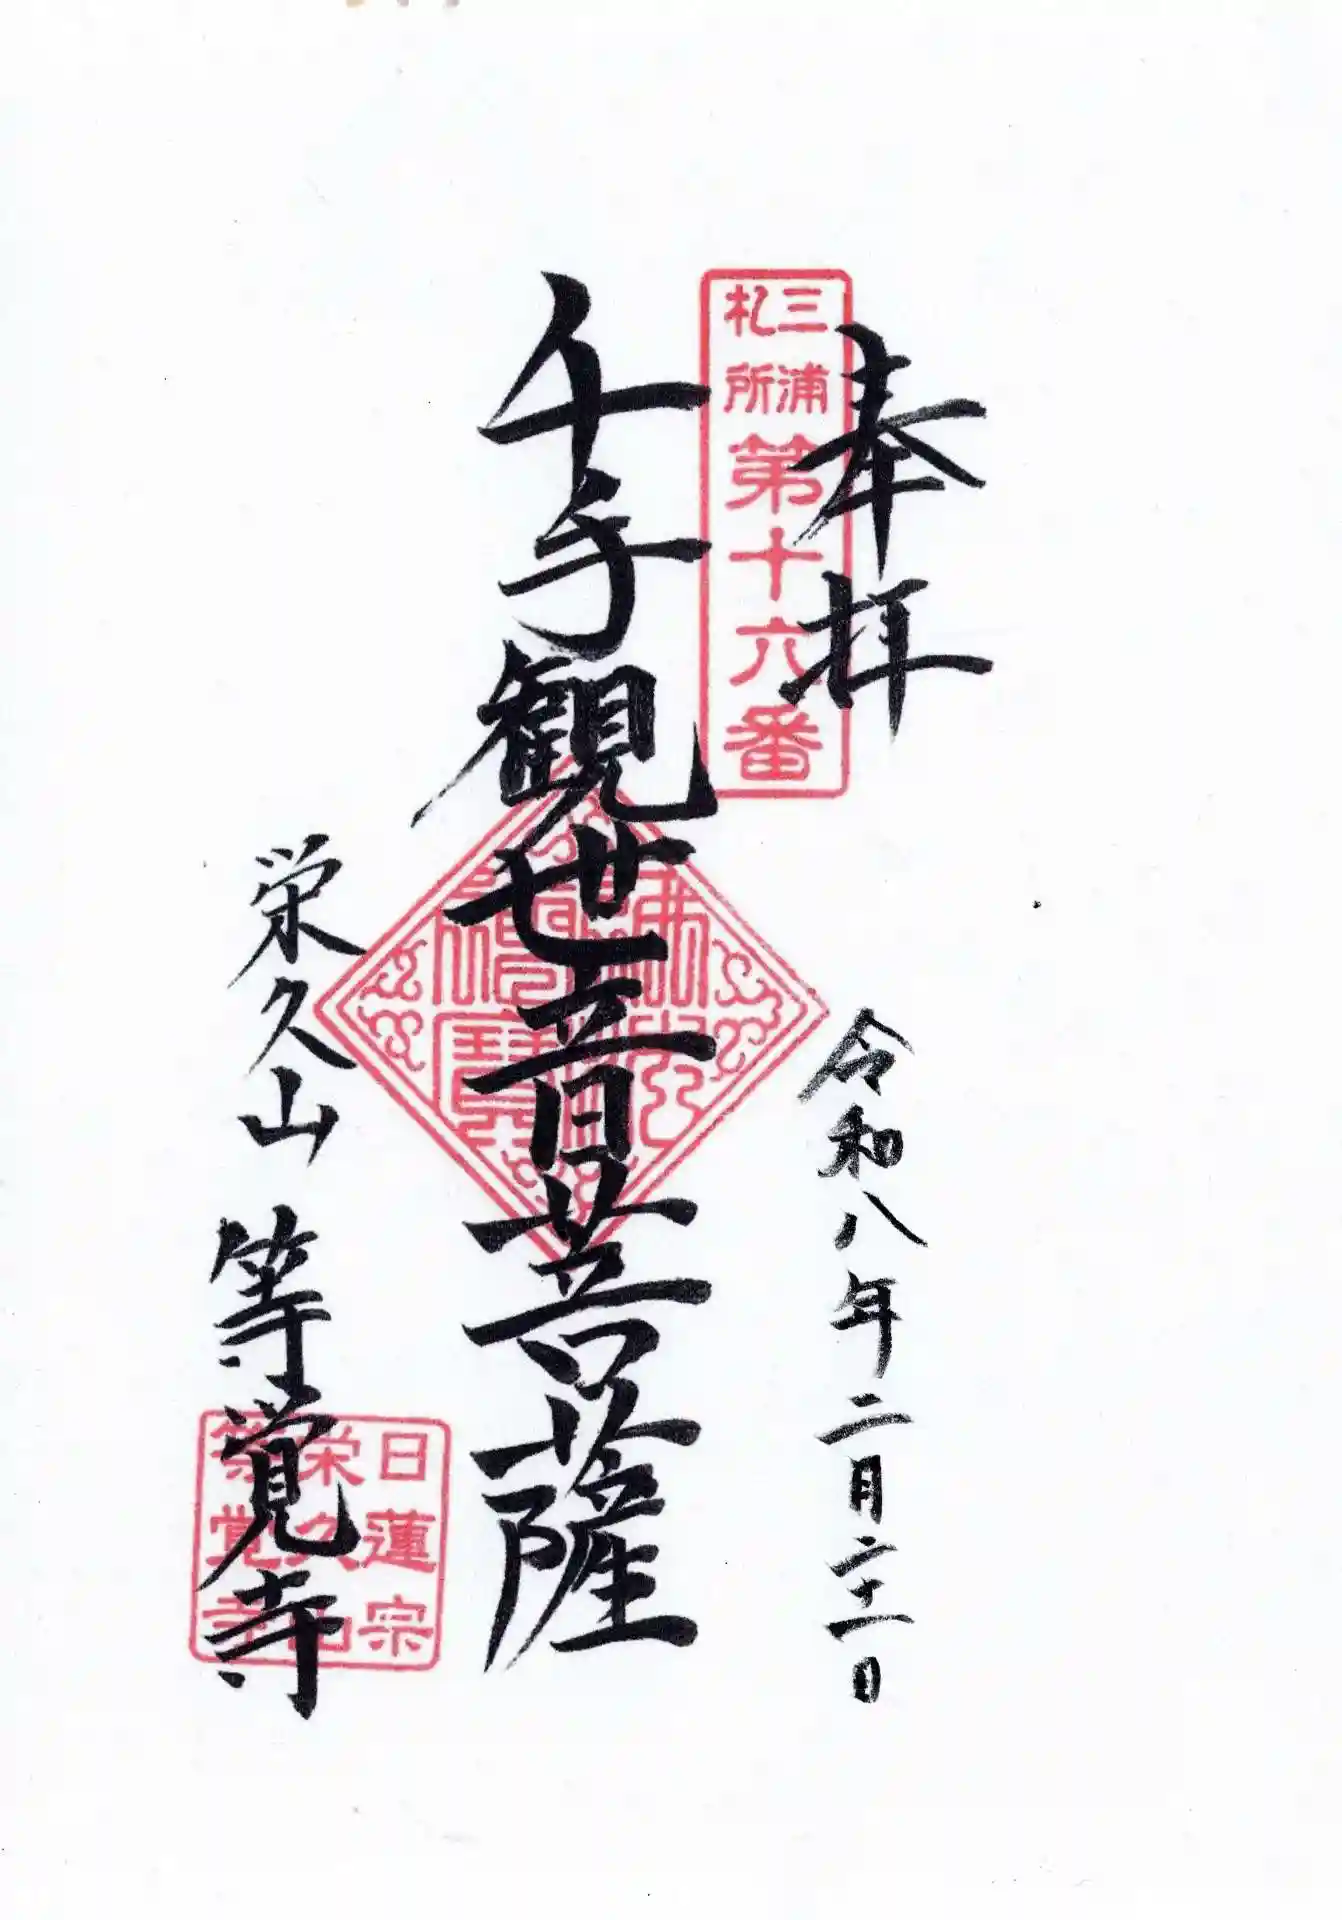 奉拝
三浦
札所
第十六番
令和八年二月二十一日
千手観世音菩薩
佛法
僧寳
栄久山 等覚寺
日蓮宗
栄久山
等覚寺